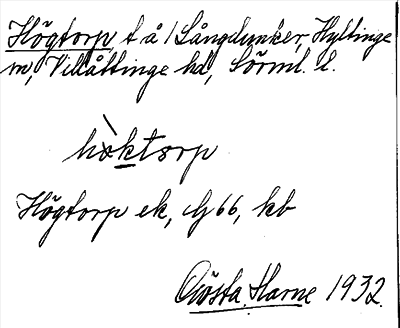 Högtorp, t å /Långdunker, Hyltinge
sn, Villåttinge hd, Sörml. l.
hòktorp
Högtorp ek, G66, kb
Gösta Harne 1932.